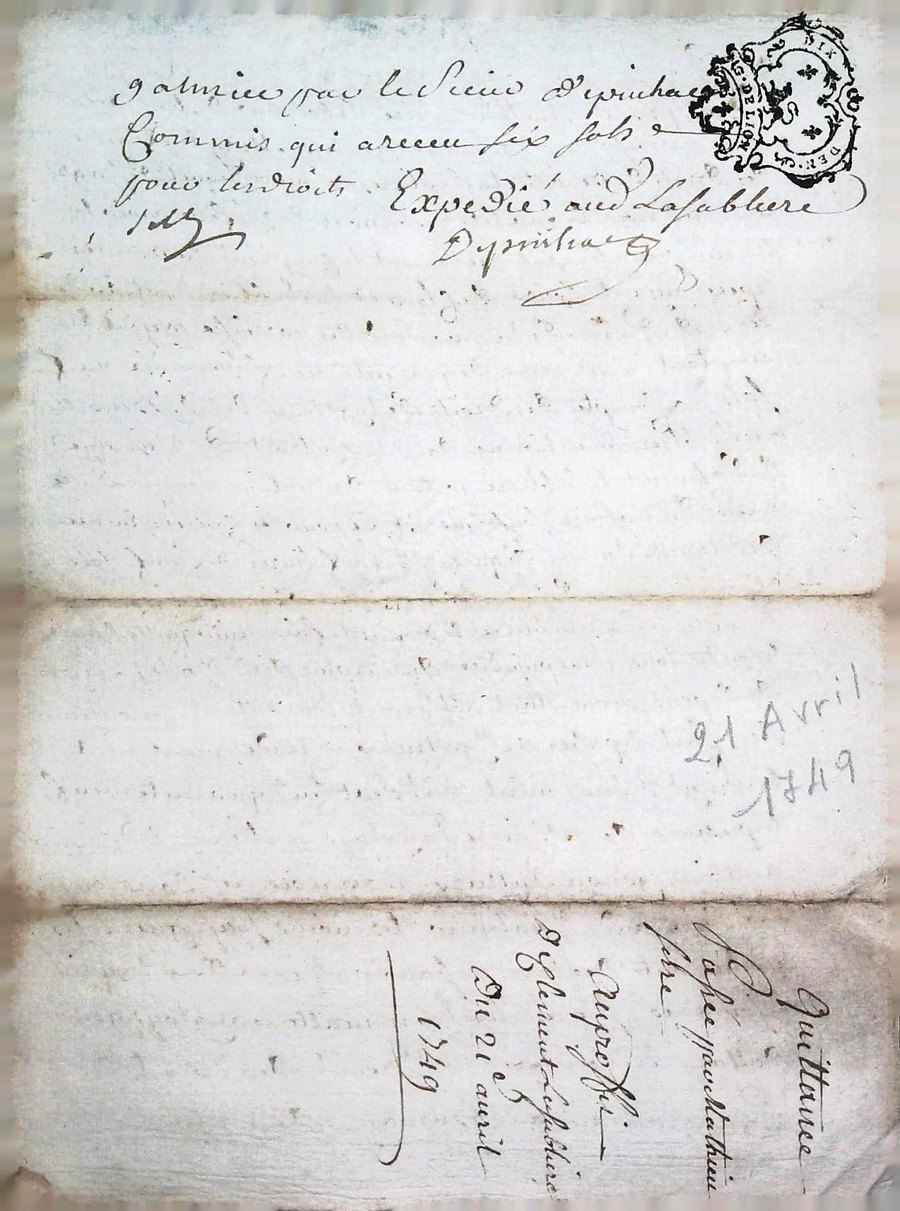 par le Sieur Depinhac
Commis qui a receu six sols
pour les droits Expedié aud Lasabliere
Depinhac
G. DE LION
DIX DEN.
21 Avril
1749
Quittance
Passée par Mathieu
fibre
au proffit
De Clement Lasabliere
Du 21e auril
1749